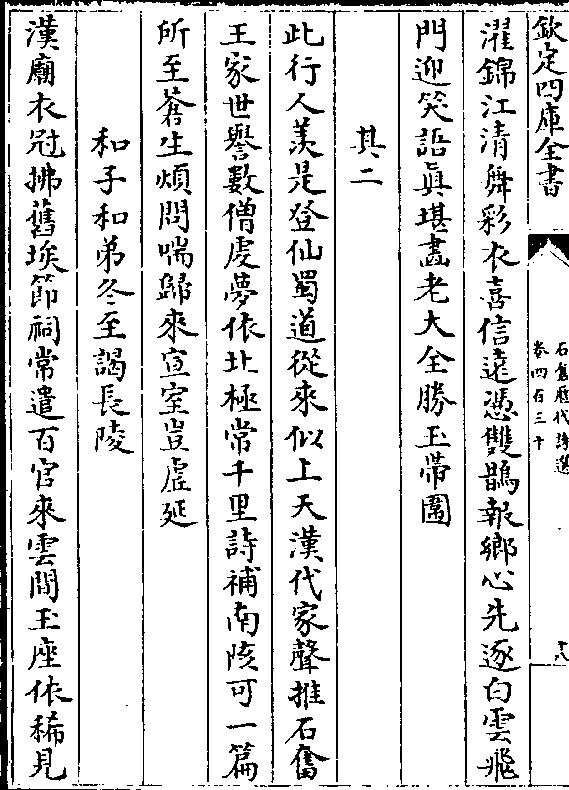 欽定四庫全書
石倉歷代詩選
卷四百三十
十八
濯錦江清舞彩衣喜信遠憑雙鵲報鄉心先逐白雲飛
門迎笑語真堪畫老大全勝玉帶圍
其二
此行人羨是登仙蜀道從來似上天漢代家聲推石奮
王家世譽數僧虔夢依北極常千里詩補南陔可一篇
所至蒼生煩問喘歸來宣室豈虛延
和子和弟冬至謁長陵
漢廟衣冠拂舊埃節祠常遣百官來雲間玉座依稀見